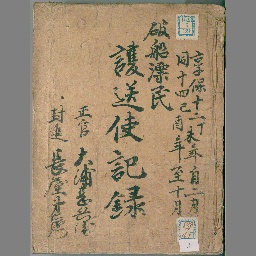 享保十二丁未年自二月
同十四己酉年至十月
破船漂民
護送使記録
正官 大浦
封進 長